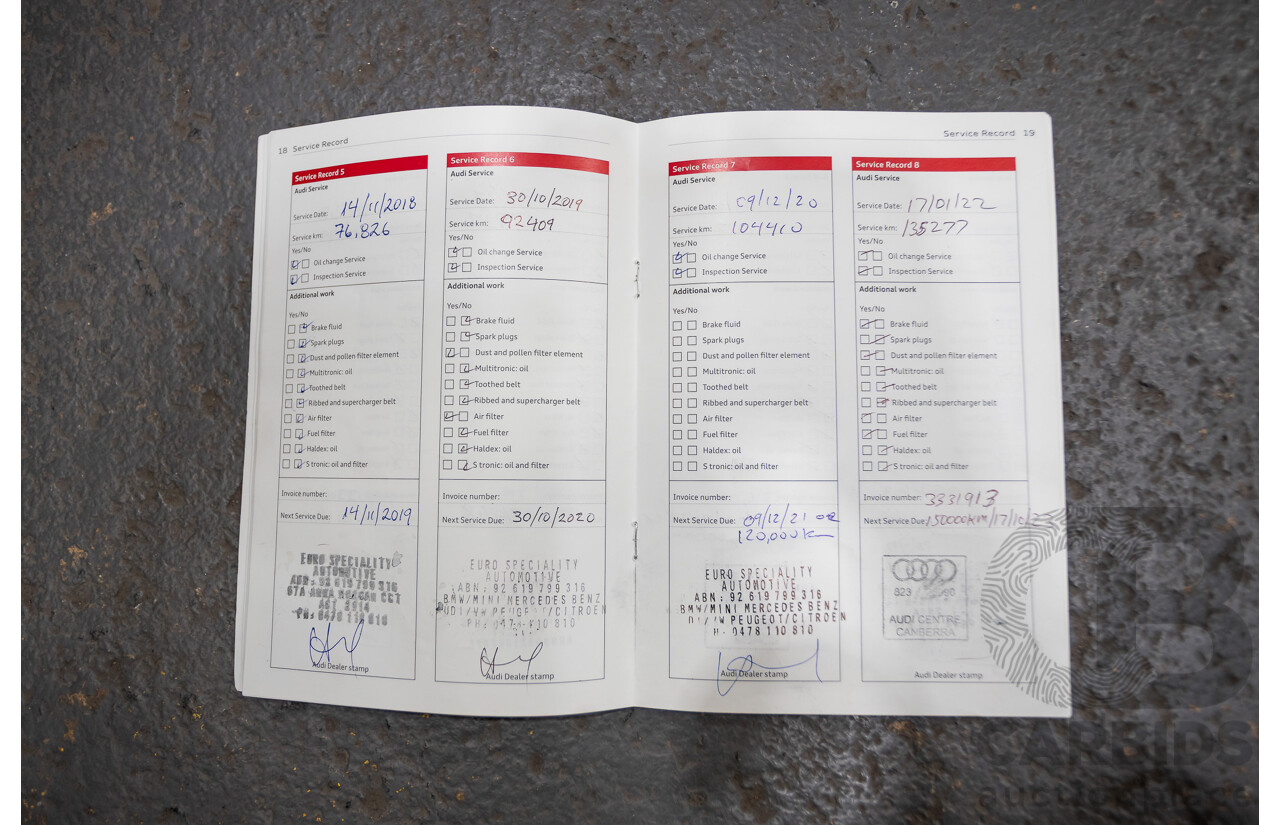 18 Service Record
Service Record 5
Audi Service
Service Date: 14/11/2018
Service km: 76,826
Yes/No
Oil change Service
Inspection Service
Additional work
Yes/No
Brake fluid
Spark plugs
Dust and pollen filter element
Multitronic: oil
Toothed belt
Ribbed and supercharger belt
Air filter
Fuel filter
Haldex: oil
S tronic: oil and filter
Invoice number:
Next Service Due: 14/11/2019
EURO SPECIALITY
AUTOMOTIVE
ABN: 92 619 799 316
CCT
PH: 0478 110 810
Audi Dealer stamp
Service Record 6
Audi Service
Service Date: 30/10/2019
Service km: 92409
Yes/No
Oil change Service
Inspection Service
Additional work
Yes/No
Brake fluid
Spark plugs
Dust and pollen filter element
Multitronic: oil
Toothed belt
Ribbed and supercharger belt
Air filter
Fuel filter
Haldex: oil
S tronic: oil and filter
Invoice number:
Next Service Due: 30/10/2020
EURO SPECIALITY
AUTOMOTIVE
ABN: 92 619 799 316
BMW/MINI MERCEDES BENZ
PEUGEOT/CITROEN
Audi Dealer stamp
Service Record 19
Service Record 7
Audi Service
Service Date: 09/12/20
Service km: 104410
Yes/No
Oil change Service
Inspection Service
Additional work
Yes/No
Brake fluid
Spark plugs
Dust and pollen filter element
Multitronic: oil
Toothed belt
Ribbed and supercharger belt
Air filter
Fuel filter
Haldex: oil
S tronic: oil and filter
Invoice number:
Next Service Due: 09/12/21 or
120,000km
EURO SPECIALITY
AUTOMOTIVE
ABN: 92 619 799 316
BMW/MINI MERCEDES BENZ
PEUGEOT/CITROEN
0478 110 810
Audi Dealer stamp
Service Record 8
Audi Service
Service Date: 17/01/22
Service km: 135277
Yes/No
Oil change Service
Inspection Service
Additional work
Yes/No
Brake fluid
Spark plugs
Dust and pollen filter element
Multitronic: oil
Toothed belt
Ribbed and supercharger belt
Air filter
Fuel filter
Haldex: oil
S tronic: oil and filter
Invoice number: 3331913
Next Service Due: 150000km
AUDI CENTRE
CANBERRA
Audi Dealer stamp
CARBIDS